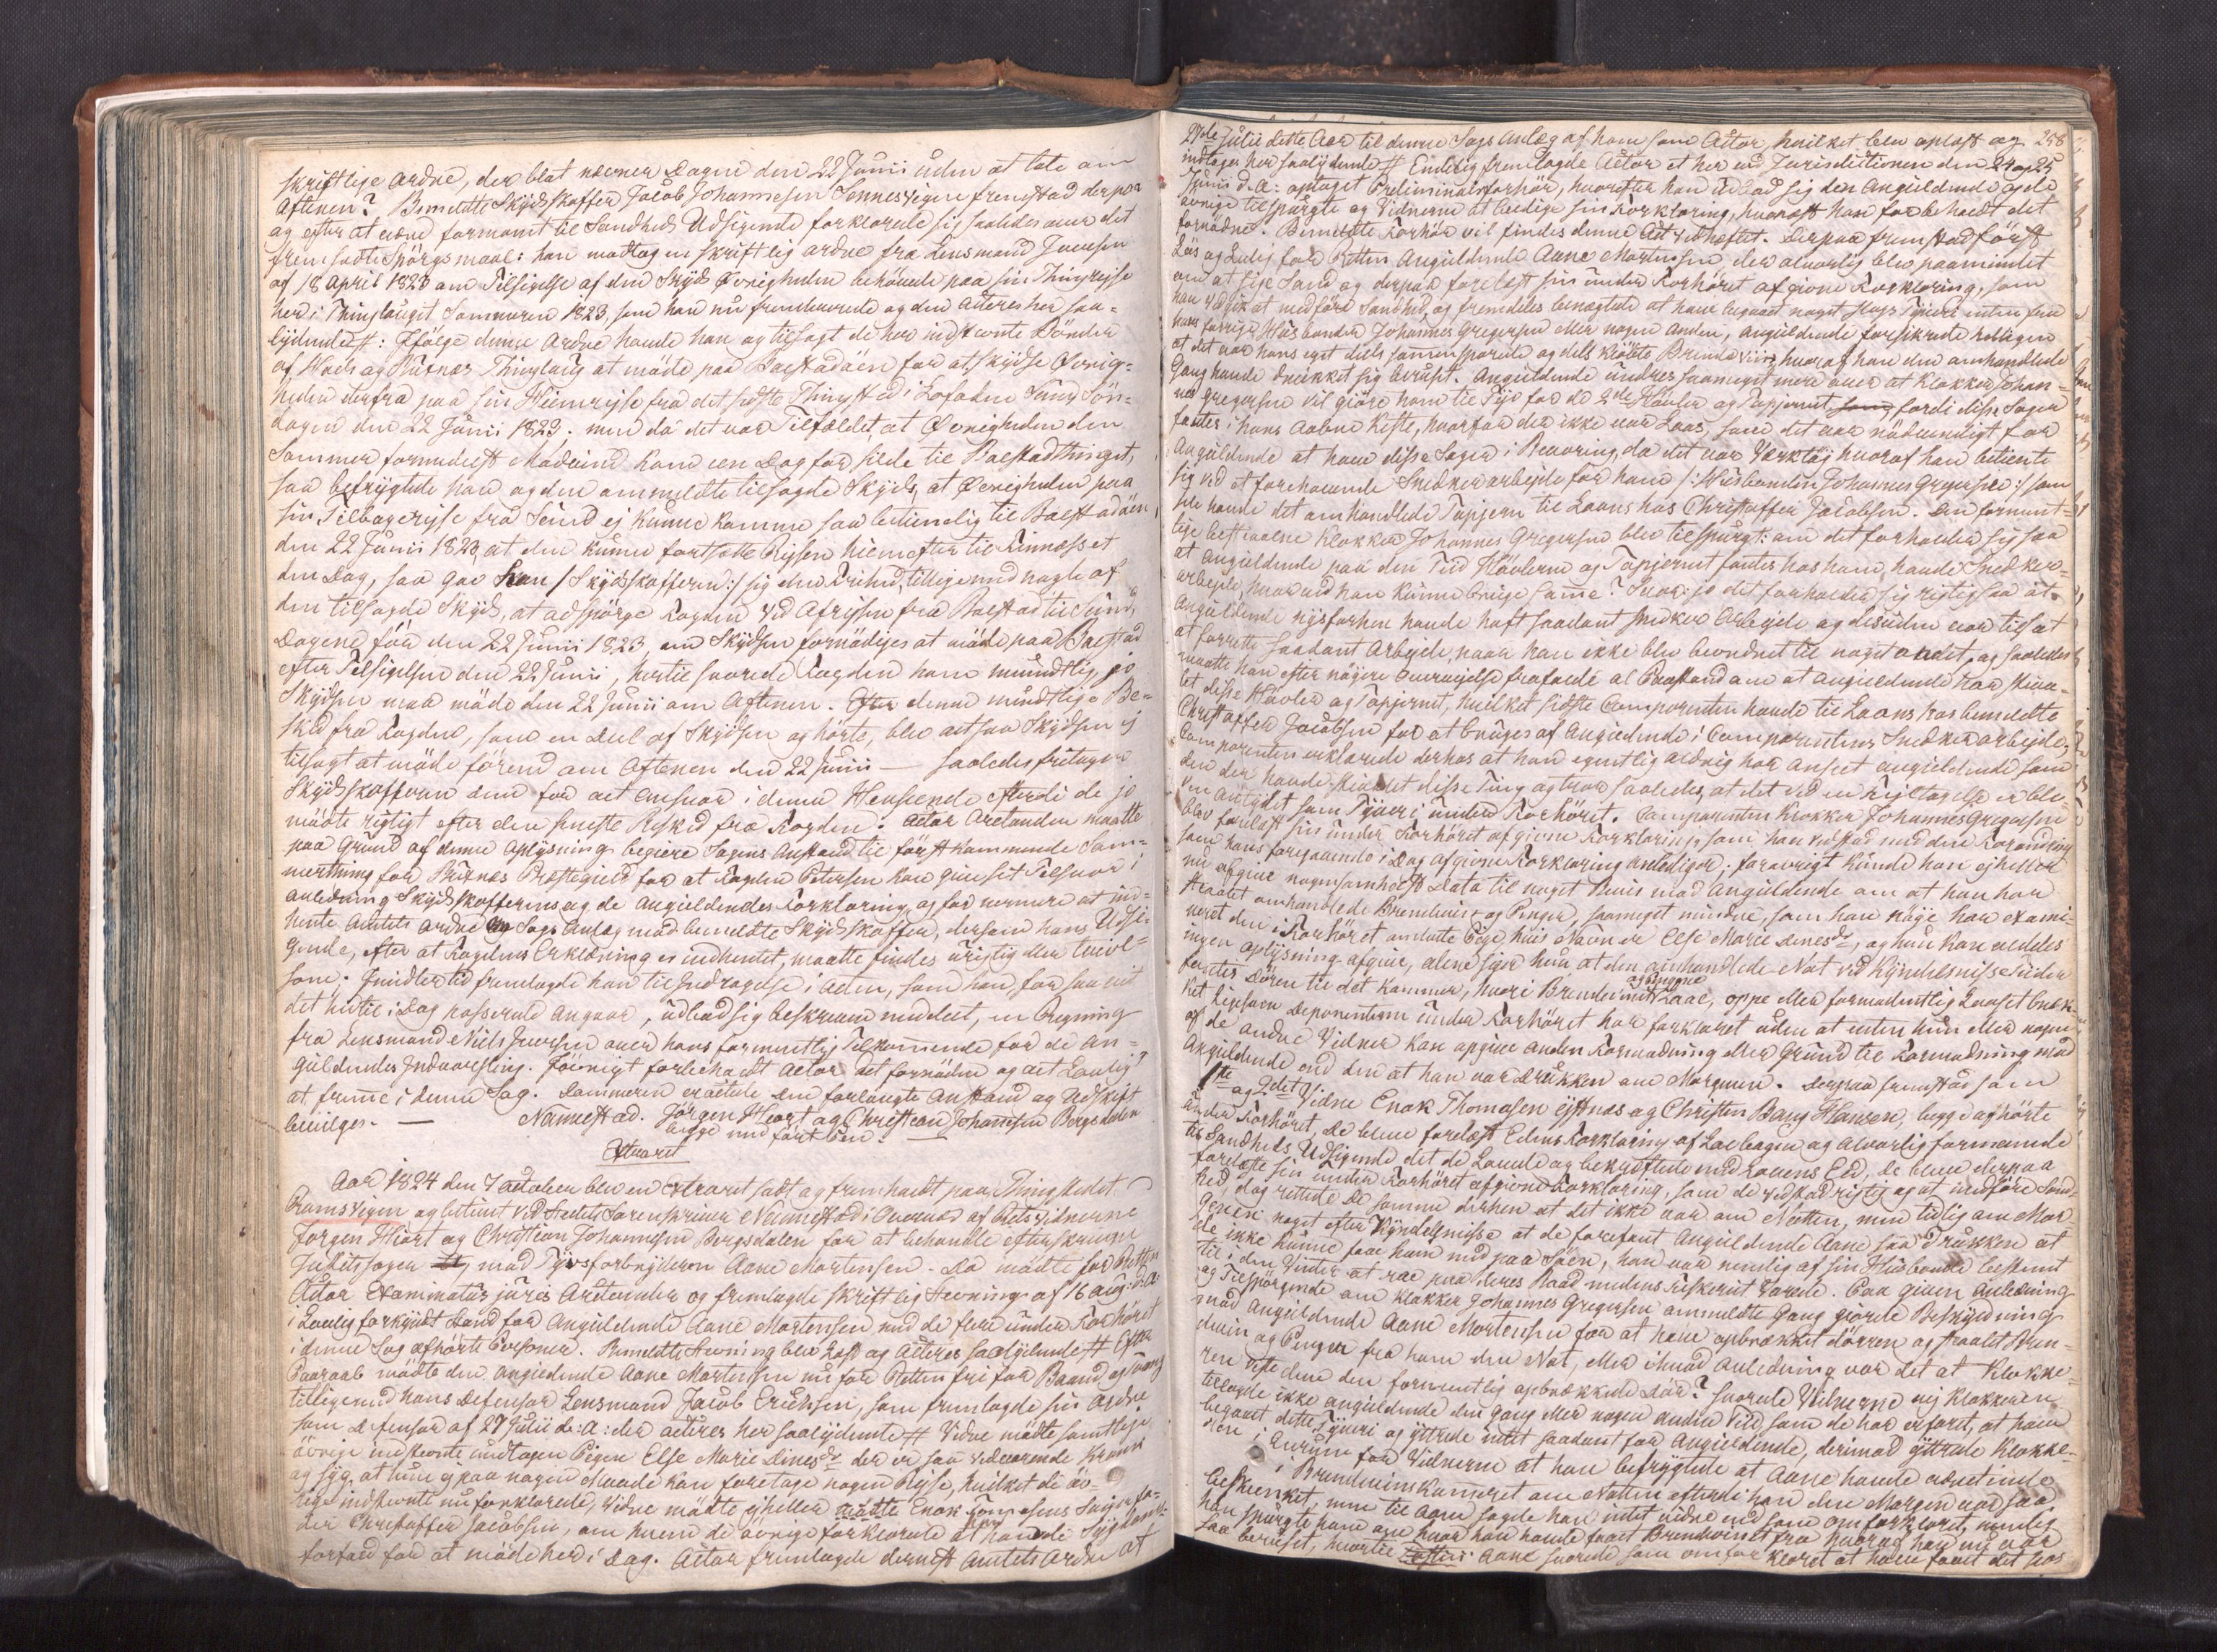 skriftlige Ordre, der blot nævner Dagen den 22 Junii uden at tale om
Aftenen? Bemeldte Skydsskaffer Jacob Johannesen Sennesvigen fremstod derpaa
og efter at være formanet til Sandheds Udsigende forklarede sig saaledes over det
fremsadte Spörgsmaal: han modtog en skriftlig Ordre fra Lensmand Juensen
af 18 April 1823 om Tilsigelse af den Skyds Övrigheden behövede paa sin Thingreyse
her i Thinglauget Sommeren 1823, som han nu fremleverede og den acteres her saa-
lydende #: Ifölge denne Ordre havde han og tilsagt de her indstevnte Bönder
af Hoels og Buknæs Thinglaug at möde paa Borstadöen for at skydse Övrig-
heden derfra paa sin Hiemreyse fra det sidste Thingsted i Lofoden Sund Sön-
dagen den 22 Junii 1823; men da det var Tilfældet, at Övrigheden den
Sommer formedelst Modvind kom een Dag for silde til Borstadthinget,
saa befrygtede han og den ommeldte tilsagde Skyds, at Övrigheden paa
sin Tilbagereyse fra Sund ej kunne komme saa betimelig til Borstadöen,
den 22 Junii 1823, at den kunne fortsætte Reysen hiemefter til
den Dag, saa gav han /: Skydsskafferen :/ sig den Frihed, tilligemed nogle af
den tilsagde Skyds, at adspörge Fogden ved Afreysen fra Borstad til Sund,
Dagene för den 22 Junii 1823, om Skydsen fornödiges at möde paa Borstad
efter Tilsigelsen den 22 Junii, hertil svarede Fogden ham mundtlig, jo
Skydsen maa möde den 22 Junii om Aftenen. Efter denne mundtlige Be-
sked fra Fogden, som en Deel af Skydsen og hörte, blev altsaa Skydsen ej
tilsagt at möde förend om Aftenen den 22 Junii — saaledes fritager
Skydsskafferen dem for alt Ansvar i denne Henseende efterdi de jo
mödte rigtigt efter den seneste Besked fra Fogden. Actor Arctander maatte
paa Grund af denne Oplysning begiere Sagens Anstand til förstkommende Som-
merthing for Buknæs Præstegield for at Fogden Petersen kan givesit Tilsvar i
anledning Skydsskafferens og de Angieldendes Forklaring og for nermere at ind-
hente Amtets Ordre om Sags Anlæg mod bemeldte Skydsskaffer, dersom hans Udsi-
gende, efter at Fogdens Erklæring er indhentet, maatte findes urigtig eller tvivl-
som. Imidlertid fremlagde han til Indtagelse i acten, som han for saavit
det hertil i Dag passerede angaar, udbad sig beskreven meddeelt, en Regning
fra Lensmand Niels Juensen over hans formentlig Tilkommende for de An-
gieldendes Indvarsling. Iövrigt forbeholdt Actor det fornödne og alt Lovligt
at fremme i denne Sag. Dommeren eragtede den forlangte Anstand og Udskrift
bevilges. — Nannestad. Jörgen Hiort og Christian Johannesen Bergsdalen
begge med fört Pen.
Extraret
Aar 1824 den 7 October blev en Extraret sadt og fremholdt paa Thingstedet
Ramsvigen og betient ved Stedets Sorenskriver Nannestad i Overvær af Retsvidnerne
Jörgen Hiort og Christian Johannesen Bergsdalen for at behandle efterskrevne
Justitssager mod Tyvsforbryderen Aane Mortensen. Da mödte for Retten
Actor Examinatus juris Arctander og fremlagde skriftlig Stevning af 16 Aug: d: A:
i Lovlig forkyndt Stand for Angieldende Aane Mortensen med de flere under Forhöret
i denne Sag afhörte Personer. Bemeldte Stevning blev læst og acteres saalydende # Efter
Paaraab mödte den Angieldende Aane Mortensen nu for Retten fri for Baand og Tvang
tilligemed hans Defensor Lensmand Jacob Erichsen, som fremlagde sin Ordre
som Defensor af 27 Julii d: A: der acteres her saalydende # Videre mödte samtlige
övrige indstevnte undtagen Pigen Else Marie Dines dr der er saa vedvarende krank
og syg, at hun ej paa nogen Maade kan foretage nogen Reyse, hvilket de öv-
rige indstevnte nu forklarede, videre mödte ejheller Enok Thomesens
der Christoffer Jacobsen, om hvem de övrige forklarede at han havde Sygdoms-
forfald for at möde her i Dag. Actor fremlagde dernest Amtets Ordre af
27de Julii dette Aar til denne Sags Anlæg af ham som Actor, hvilket blev oplæst og 258
indtages her saalydende # Endelig fremlagde Actor et her ved Jurisdictionen den 24 og 25
Junii d: A: optaget Preliminairforhör, hvorefter han udbad sig den Angieldende og de
övrige tilspurgte og Vidnerne at beedige sin Forklaring, hvornæst han forbeholdt det
fornödne. Bemeldte Forhör vil findes denne Act vedhæftet. Derpaa fremstod först
Lös og Ledig for Retten Angieldende Aane Mortensen der alvorlig blev paamindet
om at sige Sand og derpaa forelæst sin under Forhöret afgivne Forklaring, som
han vedgik at medföre Sandhed, og fremdeles benægtede at have begaaet noget Slags Tyverie enten fra
hans forrige Huusbonde Johannes Gregersen eller nogen Anden, Angieldende forsikrede helligen
at det var hans eget deels sammensparede og deels kiöbte Brendeviin, hvoraf han den omhandlede
Gang havde drukket sig beruset. Angieldende undres saameget mere over at Klokker Johan-
nes Gregersen vil giöre ham til Tyv for de 2de Hövler og Tapjernet fordi disse Sager
fantes i hans Aabne Kiste, hvorfor der ikke var Laas, som det var nödvendigt for
Angieldende at have disse Sager i Bevaring, da det var Verktöj hvoraf han betiente
sig ved at forehavende Snedkerarbejde for ham /: Huusbonden Johannes Gregersen :/ som
selv havde det omhandlede Tapjern til Laans hos Christoffer Jacobsen. Den forment-
lige bestiaalne Klokker Johannes Gregersen blev tilspurgt: om det forholder sig saa
at Angieldende paa den Tiid Hövlerne og Tapjernet fantes hos ham, havde Snedker-
arbejde, hvorved han kunne bruge samme? Svar: jo det forholder sig rigtig saa at
Angieldende nysforhen havde haft saadant Snedker Arbejde og desuden var tilsat
at forrette saadant Arbejde, naar han ikke blev beordret til noget andet, og saaledes
maatte han efter nöjere Overvejelse frafalde al Paastand om at Angieldende har stiaa-
let disse Hövler og Tapjernet, hvilket sidste Comparenten havde til Laans hos bemeldte
Christoffer Jacobsen for at bruges af Angieldende i Comparentens Snedkerarbejde.
Comparenten erklærede derhos at han egentlig aldrig har anseet Angieldende som
den der havde stiaalet disse Ting og troer saaledes, at det ved en Fejltagelse er ble-
ven antydet som Tyveri i under Forhöret. Comparenten Klokker Johannes Gregersen
blev forelæst sin under Forhöret afgivne Forklaring, som han vedstod med den Forandring
som hans foregaaende i Dag afgivne Forklaring meddeler; forövrigt kunde han ejheller
nu afgive nogensomhelst Data til noget Beviis mod Angieldende om at han har
stiaalet omhandlede Brendeviin og Penge, saameget mindre, som han nöje har exami-
neret den i Forhöret omhandlede Pige, hvis Navn er Else Marie Dines dr, og hun kan aldeles
ingen oplysning afgive, alene siger hun at den omhandlede Nat ved Kyndelsmisse Tider
fantes Dören til det Kammer, hvori Brendevinet og Pengene laae, oppe eller formodentlig Laaset bræk-
ket ligesom Deponentinn under Forhöret har forklaret uden at enten hun eller nogen
af de andre Vidner kan opgive anden Formodning eller Grund til Formodning mod
Angieldende end den at han var drukken om Morgenen. Derpaa fremstod som
1ste og 2det Vidne Enok Thomasen Ystnæs og Christen Bang Hansen, begge afhörte
under Forhöret, De bleve forelæst Edens Forklaring af Lovbogen og alvorlig formanede
til Sandheds Udsigende det de Lovede og bekræftede med Lovens Eed. De bleve derpaa
forelæste sin under Forhöret afgivne Forklaring, som de vedstod rigtig og at medföre Sand-
hed, dog rettede De samme derhen at det ikke var om Natten, men tidlig om Mor-
genen noget efter Kyndelsmisse at de forefant Angieldende Aane saa drukken at
de ikke kunne faae ham med paa Söen, han var nemlig af sin Huusbonde bestemt
til i den Vinter at roe paa deres Baad medens Fiskeriet varede. Paa given Anledning
og Tilspörgende om Klokker Johannes Gregersen ommeldte Gang giorde Beskyldning
mod Angieldende Aane Mortensen for at have opbrækket dören og stiaalet Bren-
deviin og Penge fra ham den Nat, eller i hvad anledning var det at Klokke-
ren viste dem den formentlig opbrækkede Dör? Svarede Vidnerne nej Klokkeren
tillagde ikke Angieldende den Gang eller nogen anden Tiid, som de har erfaret, at have
begaaet dette Tyveri og yttrede intet saadant for Angieldende, derimod yttrede Klokke-
ren i Enrum for Vidnerne at han befrygtede at Aane havde været inde
i Brendeviinskammeret om Natten efterdi han den Morgen var saa
beskienket, men til Aane sagde han intet videre end som omforklaret, nemlig
han spurgte ham om hvor han havde faaet Brendevinet fra hvoraf han nu var
saa beruset, hvortil Aane svarede som omforklaret at have faaet det hos